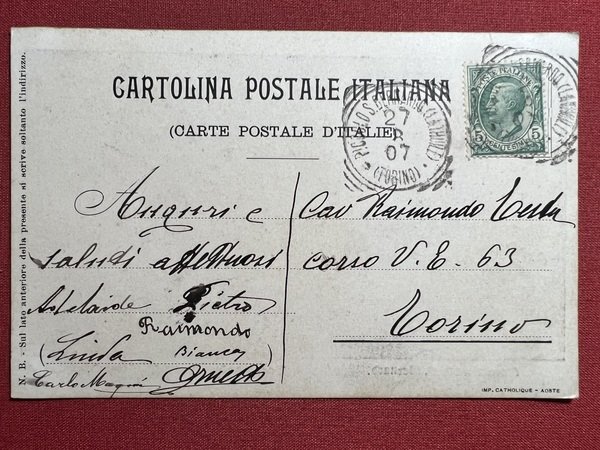 CARTOLINA POSTALE ITALIANA
(CARTE POSTALE D'ITALIE)
N. B. - Sul lato anteriore della presente si scrive soltanto l'indirizzo.
POSTE ITALIANE
5 CENTESIMI 5
PICCOLO S. BERNARDO (LA THUILE)
27
07
(TORINO)
Auguri e
saluti affettuosi
Adelaide Pietro
Raimondo
(Linda Bianca
Carlo Ernesto
Cav Raimondo Testa
corso V. E. 63
Torino
IMP. CATHOLIQUE - AOSTE